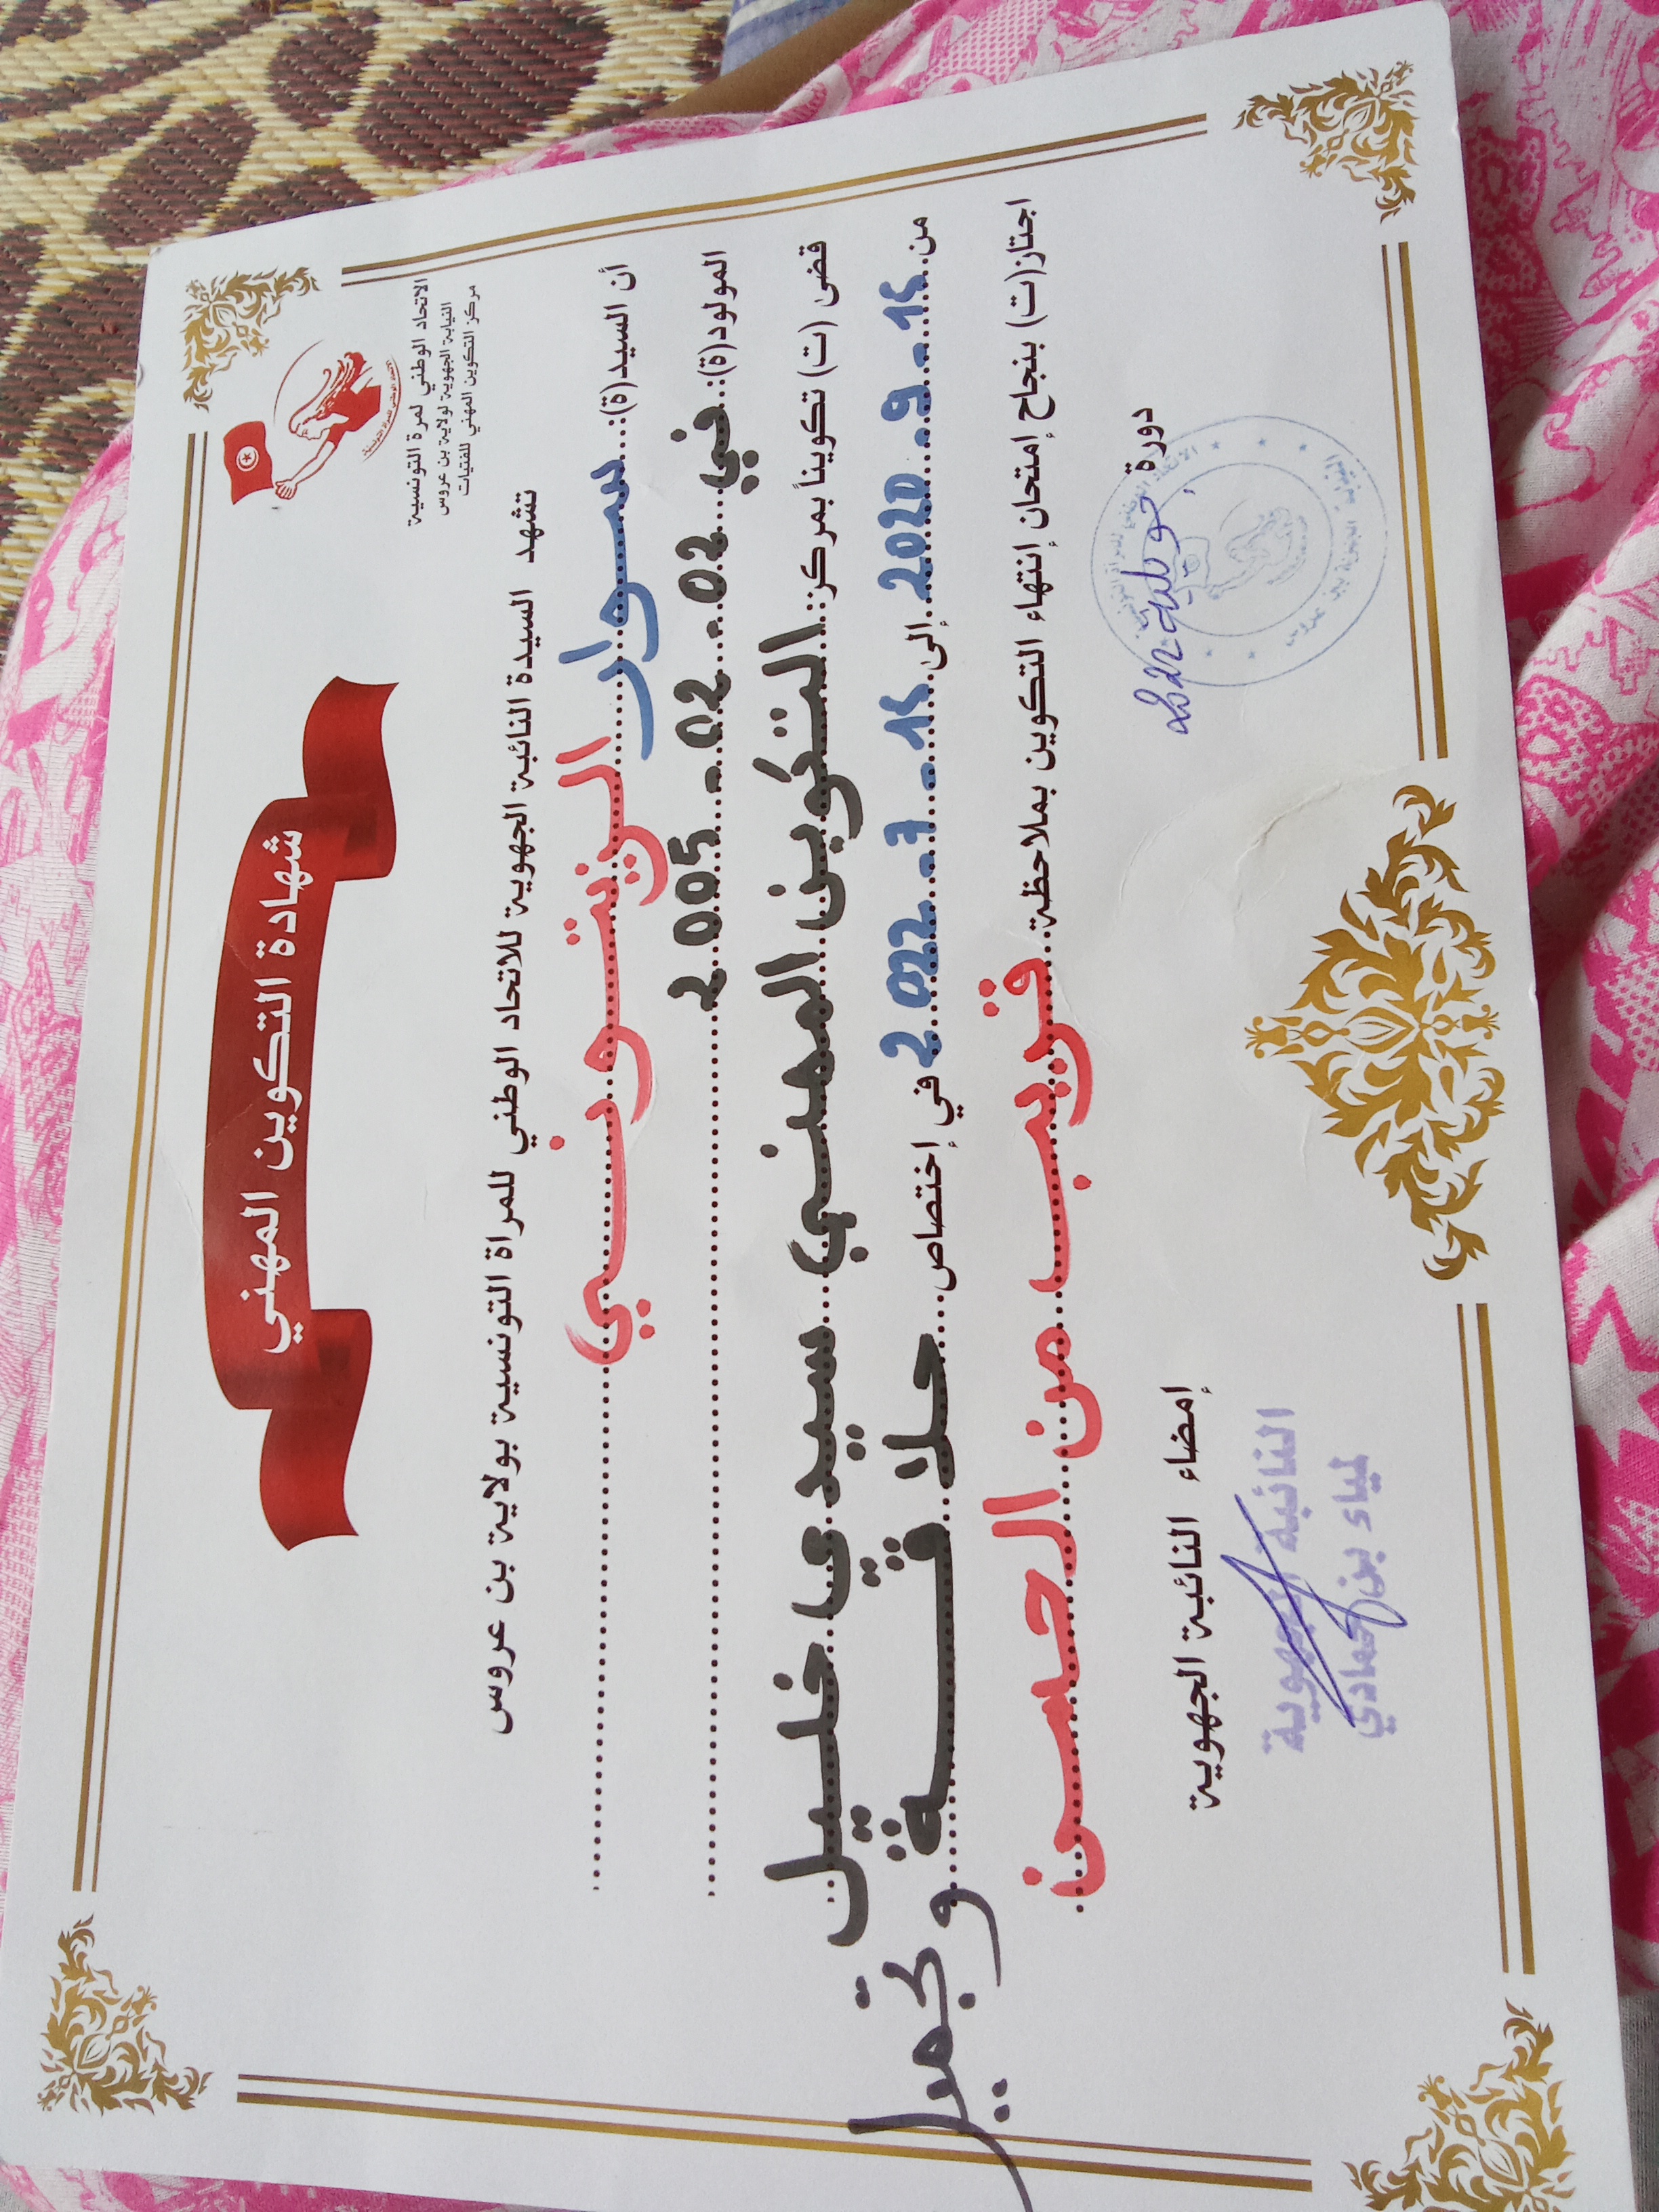 الاتحاد الوطني لمرة التونسية
النيابة الجهوية لولاية بن عروس
مركز التكوين المهني للفتيات
شهادة التكوين المهني
تشهد السيدة النائبة الجهوية للاتحاد الوطني للمراة التونسية بولاية بن عروس
أن السيد(ة):...سوار الزيتوني
المولود(ة):..في 02-02-2005
قضى (ت) تكويناً بمركز: التكوين المهني سيدي خليل
من..15-9-2020 إلى..15-7-2022 في إختصاص...حلاقة و تجميل
اجتاز(ت) بنجاح إمتحان إنتهاء التكوين بملاحظة..قريب من الحسن
دورة جويلية 2022
إمضاء النائبة الجهوية
النائبة الجهوية
لمياء بن حمادي